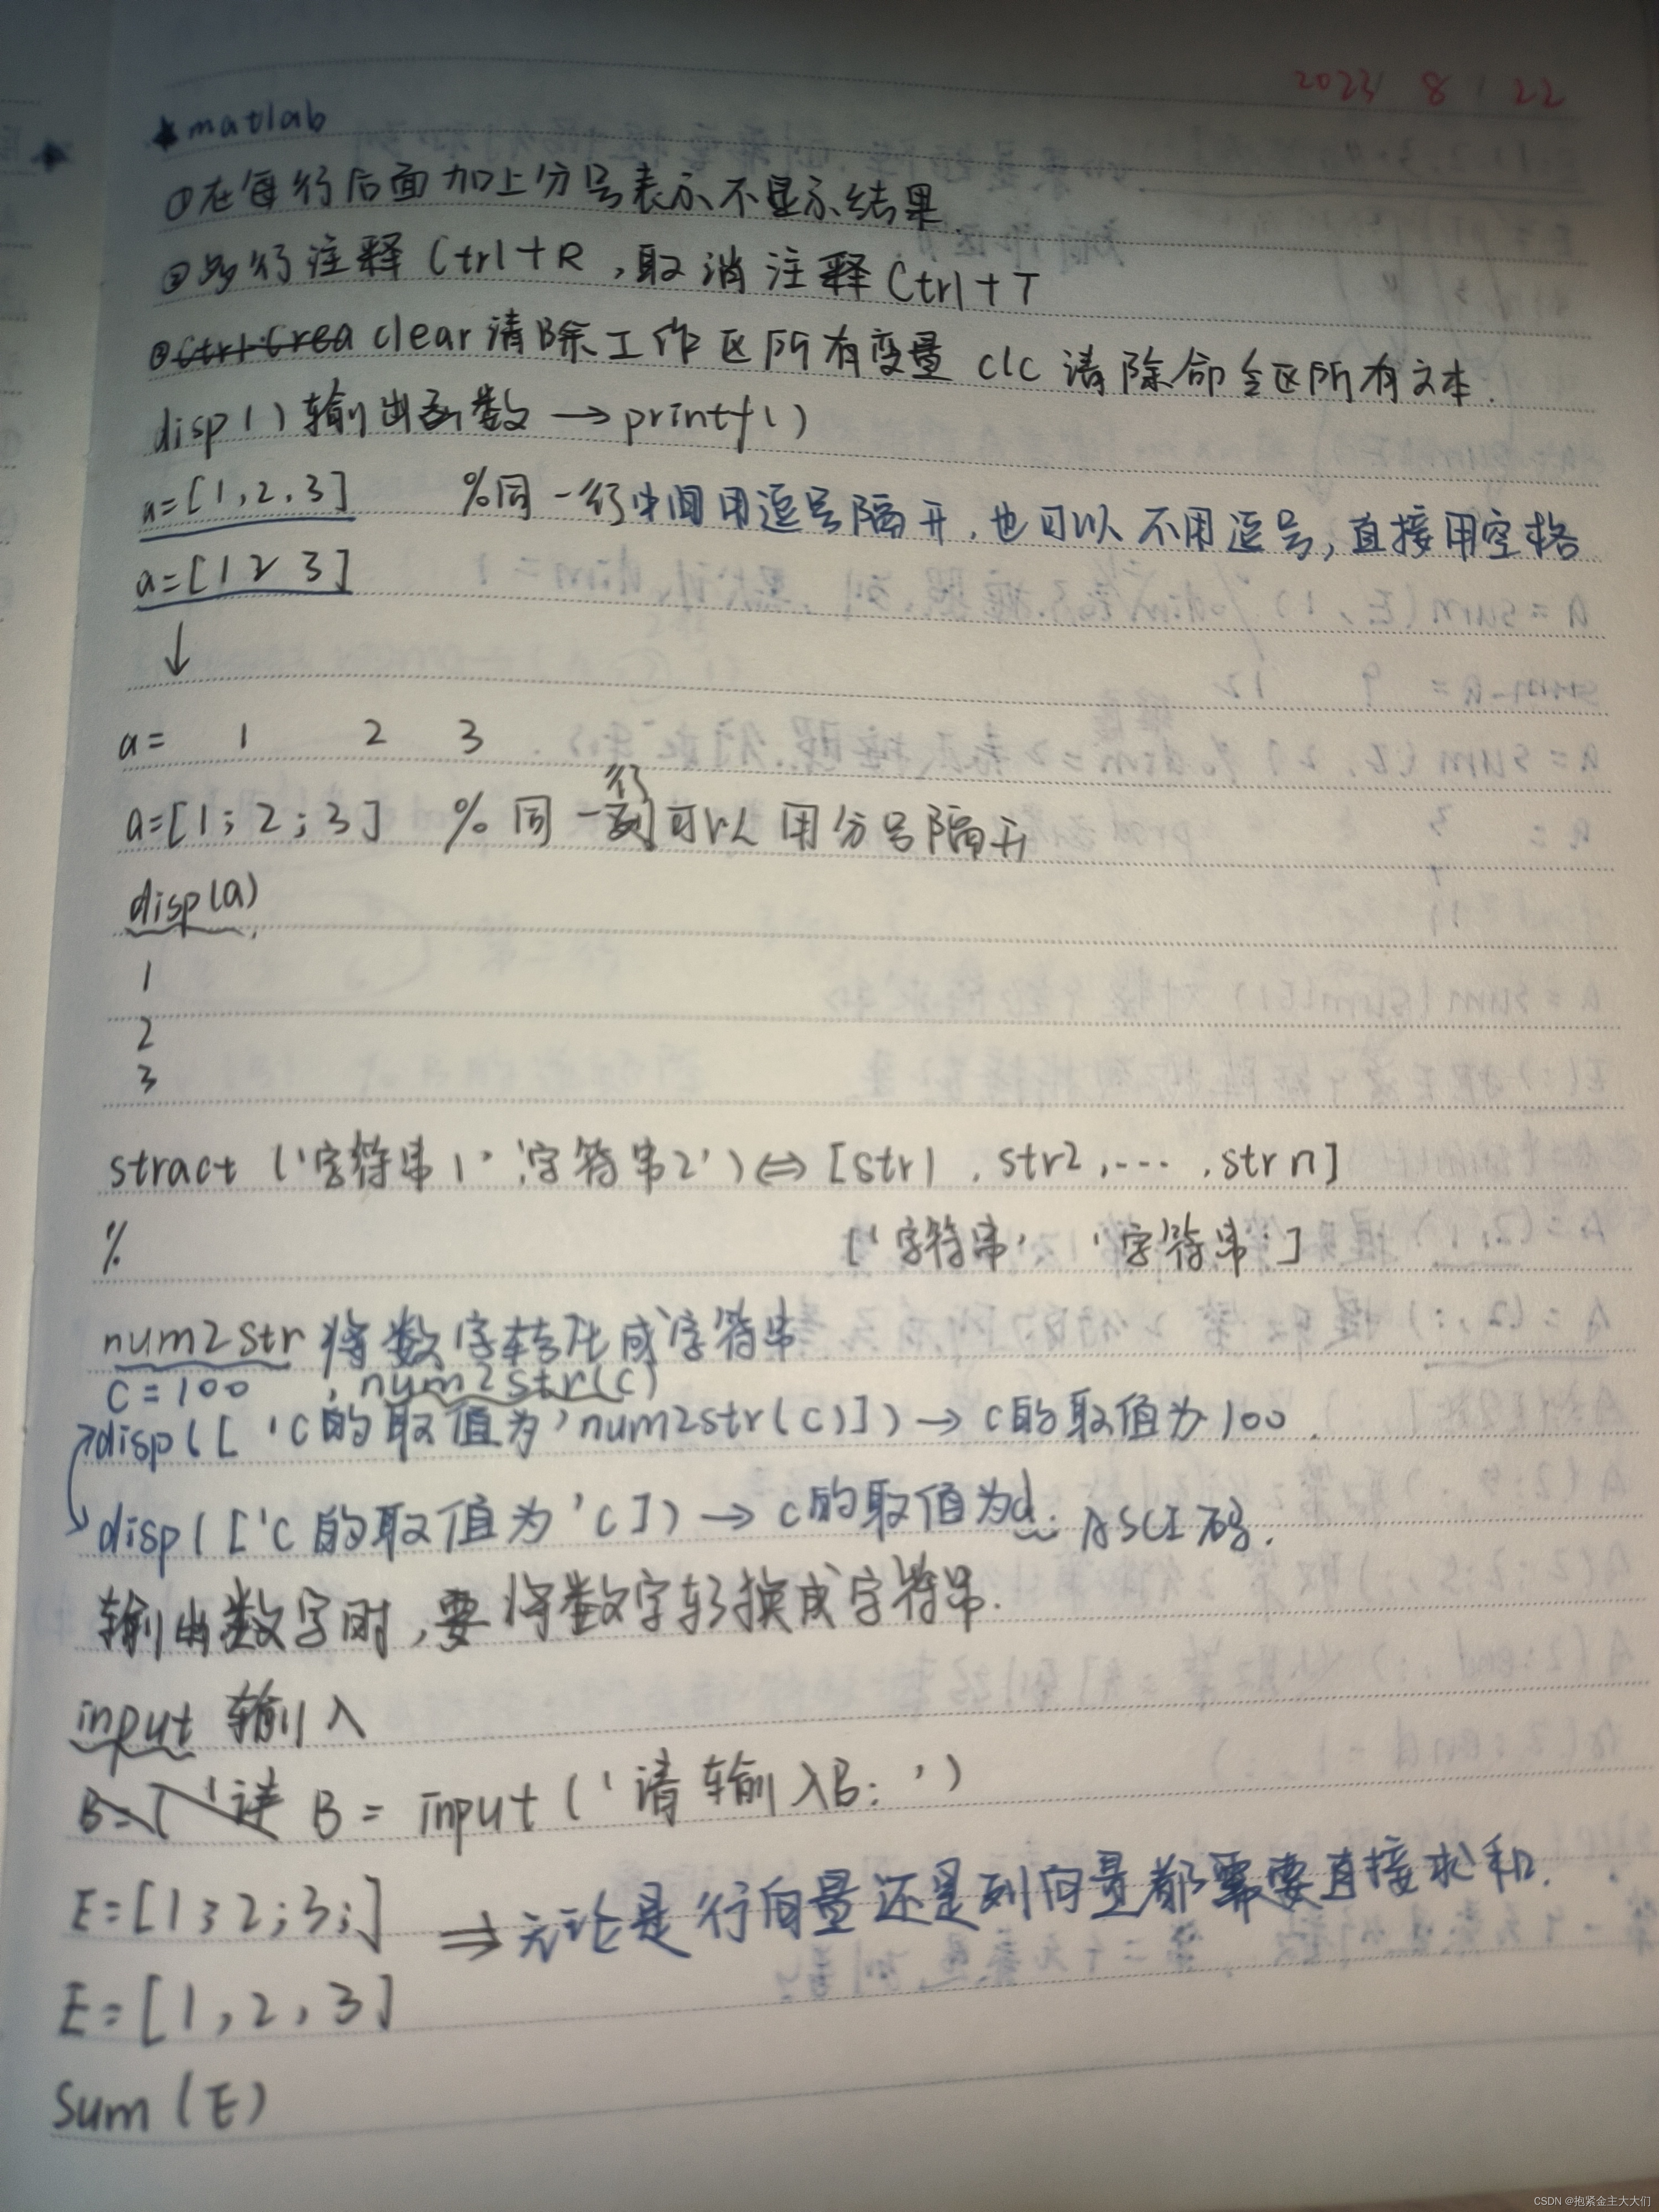 2023 8 22
★matlab
①在每行后面加上分号表示不显示结果.
②多行注释 Ctrl+R ,取消注释 Ctrl+T
③Ctrl+Crea clear 清除工作区所有变量 clc 清除命令区所有文本.
disp() 输出函数 → printf()
a=[1,2,3] %同一行中间用逗号隔开,也可以不用逗号,直接用空格
a=[1 2 3]
↓
a= 1 2 3
行
a=[1;2;3] % 同一列可以用分号隔开
disp(a)
1
2
3
stract ('字符串1','字符串2') ⇔ [str1 , str2 ,… , str n]
% ['字符串' '字符串']
num2str 将数字转化成字符串
C=100 , num2str(c)
disp([ 'C的取值为'num2str(c)]) → c的取值为100.
disp(['C的取值为'C]) → c的取值为d. ASCI码.
输出数字时,要将数字转换成字符串.
input 输入
B=[ '请 B = input ('请输入B: ')
E=[1;2;3;] ⇒ 无论是行向量还是列向量都需要直接求和.
E=[1,2,3]
Sum (E)
CSDN @抱紧金主大大们